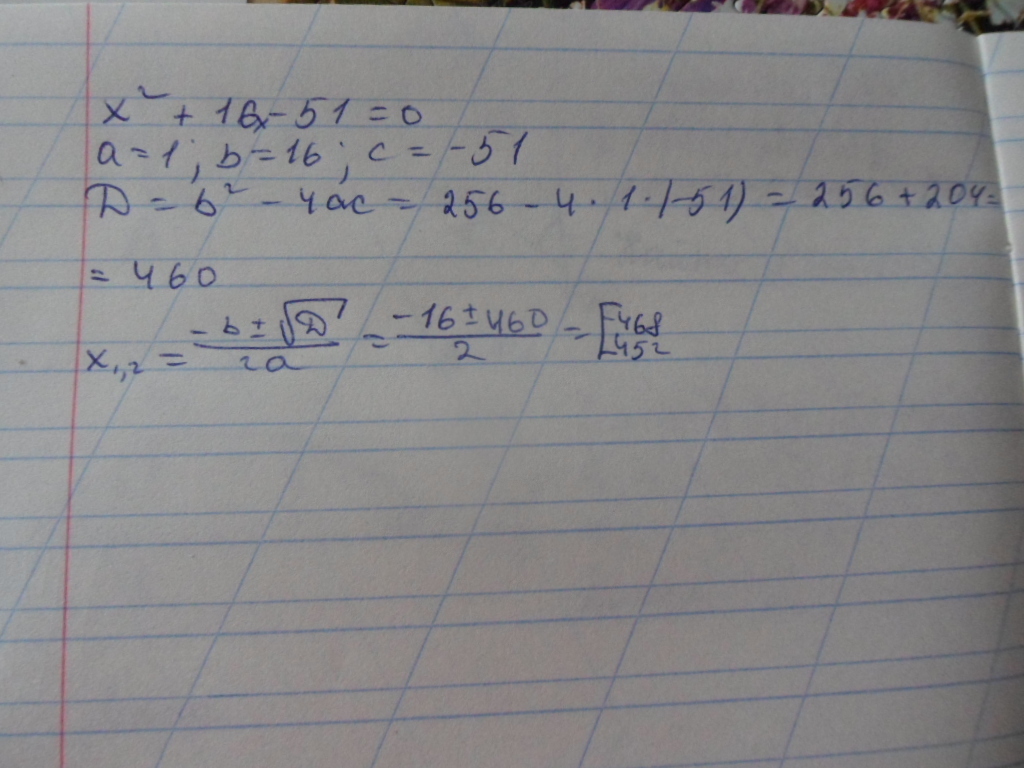 x² + 16x - 51 = 0
a = 1 ; b = 16 ; c = -51
D = b² - 4ac = 256 - 4 · 1 · (-51) = 256 + 204 =
= 460
x₁,₂ = (-b ± √D) / 2a = (-16 ± 460) / 2 = [468 452